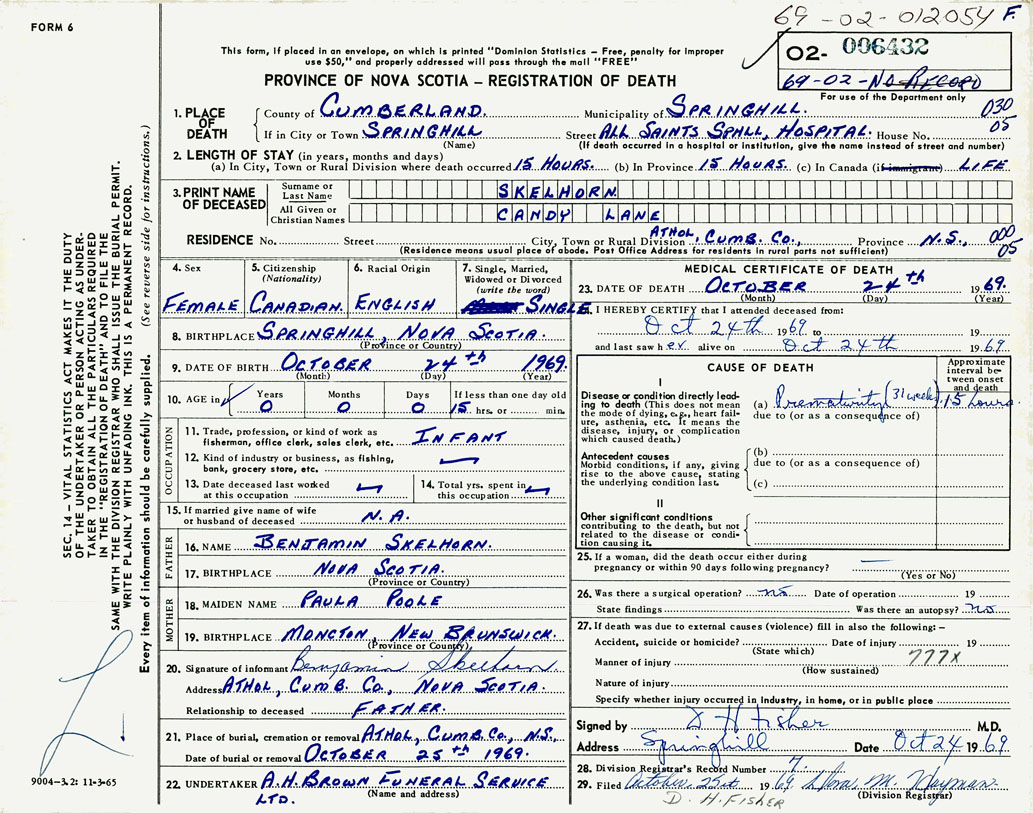 69-02-012054 F.
FORM 6
02- 006432
This form, if placed in an envelope, on which is printed "Dominion Statistics — Free, penalty for improper
use $50," and properly addressed will pass through the mail "FREE"
69-02-No Record
PROVINCE OF NOVA SCOTIA — REGISTRATION OF DEATH
For use of the Department only
1. PLACE OF DEATH
County of CUMBERLAND. Municipality of SPRINGHILL. 030
If in City or Town SPRINGHILL Street ALL SAINTS SPHLL, HOSPITAL. House No. 05
(Name) (If death occurred in a hospital or institution, give the name instead of street and number)
2. LENGTH OF STAY (in years, months and days)
(a) In City, Town or Rural Division where death occurred 15 HOURS. (b) In Province 15 HOURS. (c) In Canada (if immigrant) LIFE
3. PRINT NAME OF DECEASED
Surname or Last Name SKELHORN
All Given or Christian Names CANDY LANE
RESIDENCE No. Street City, Town or Rural Division ATHOL, CUMB. CO., Province N.S., 000
(Residence means usual place of abode. Post Office Address for residents in rural parts not sufficient) 05
4. Sex
FEMALE
5. Citizenship
(Nationality)
CANADIAN.
6. Racial Origin
ENGLISH
7. Single, Married,
Widowed or Divorced
(write the word)
SINGLE.
8. BIRTHPLACE SPRINGHILL, NOVA SCOTIA.
(Province or Country)
9. DATE OF BIRTH OCTOBER 24th 1969.
(Month) (Day) (Year)
10. AGE in Years Months Days If less than one day old
0 0 0 15 hrs. or min.
OCCUPATION
11. Trade, profession, or kind of work as
fisherman, office clerk, sales clerk, etc. INFANT
12. Kind of industry or business, as fishing,
bank, grocery store, etc.
13. Date deceased last worked
at this occupation
14. Total yrs. spent in
this occupation
15. If married give name of wife
or husband of deceased N.A.
FATHER
16. NAME BENJAMIN SKELHORN.
17. BIRTHPLACE NOVA SCOTIA.
(Province or Country)
MOTHER
18. MAIDEN NAME PAULA POOLE
19. BIRTHPLACE MONCTON, NEW BRUNSWICK.
(Province or Country)
20. Signature of informant Benjamin Skelhorn
Address ATHOL, CUMB. CO., NOVA SCOTIA.
Relationship to deceased FATHER.
21. Place of burial, cremation or removal ATHOL, CUMB. CO., N.S.,
Date of burial or removal OCTOBER 25th 1969.
22. UNDERTAKER A.H. BROWN FUNERAL SERVICE
LTD. (Name and address)
MEDICAL CERTIFICATE OF DEATH
23. DATE OF DEATH OCTOBER 24th 1969.
(Month) (Day) (Year)
I HEREBY CERTIFY that I attended deceased from:
Oct 24th 1969 to 19
and last saw her alive on Oct 24th 1969.
CAUSE OF DEATH
Approximate
interval be-
tween onset
and death
I
Disease or condition directly lead-
ing to death (This does not mean
the mode of dying, e.g., heart fail-
ure, asthenia, etc. It means the
disease, injury, or complication
which caused death.)
(a) Prematurity (31 weeks). 15 hours.
due to (or as a consequence of)
Antecedent causes
Morbid conditions, if any, giving
rise to the above cause, stating
the underlying condition last.
(b)
due to (or as a consequence of)
(c)
II
Other significant conditions
contributing to the death, but not
related to the disease or condi-
tion causing it.
25. If a woman, did the death occur either during
pregnancy or within 90 days following pregnancy? —
(Yes or No)
26. Was there a surgical operation? no. Date of operation 19
State findings Was there an autopsy? no.
27. If death was due to external causes (violence) fill in also the following: —
Accident, suicide or homicide? Date of injury 19
(State which) 777X
Manner of injury
(How sustained)
Nature of injury
Specify whether injury occurred in industry, in home, or in public place
Signed by D H Fisher M.D.
Address Springhill Date Oct 24 1969
28. Division Registrar's Record Number 7.
29. Filed October 25th 1969. M. Hayman
D. H. FISHER (Division Registrar)
SEC. 14 — VITAL STATISTICS ACT MAKES IT THE DUTY
OF THE UNDERTAKER OR PERSON ACTING AS UNDER-
TAKER TO OBTAIN ALL THE PARTICULARS REQUIRED
IN THE "REGISTRATION OF DEATH" AND TO FILE THE
SAME WITH THE DIVISION REGISTRAR WHO SHALL ISSUE THE BURIAL PERMIT.
WRITE PLAINLY WITH UNFADING INK. THIS IS A PERMANENT RECORD.
Every item of information should be carefully supplied. (See reverse side for instructions.)
9004-3.2: 11-3-65